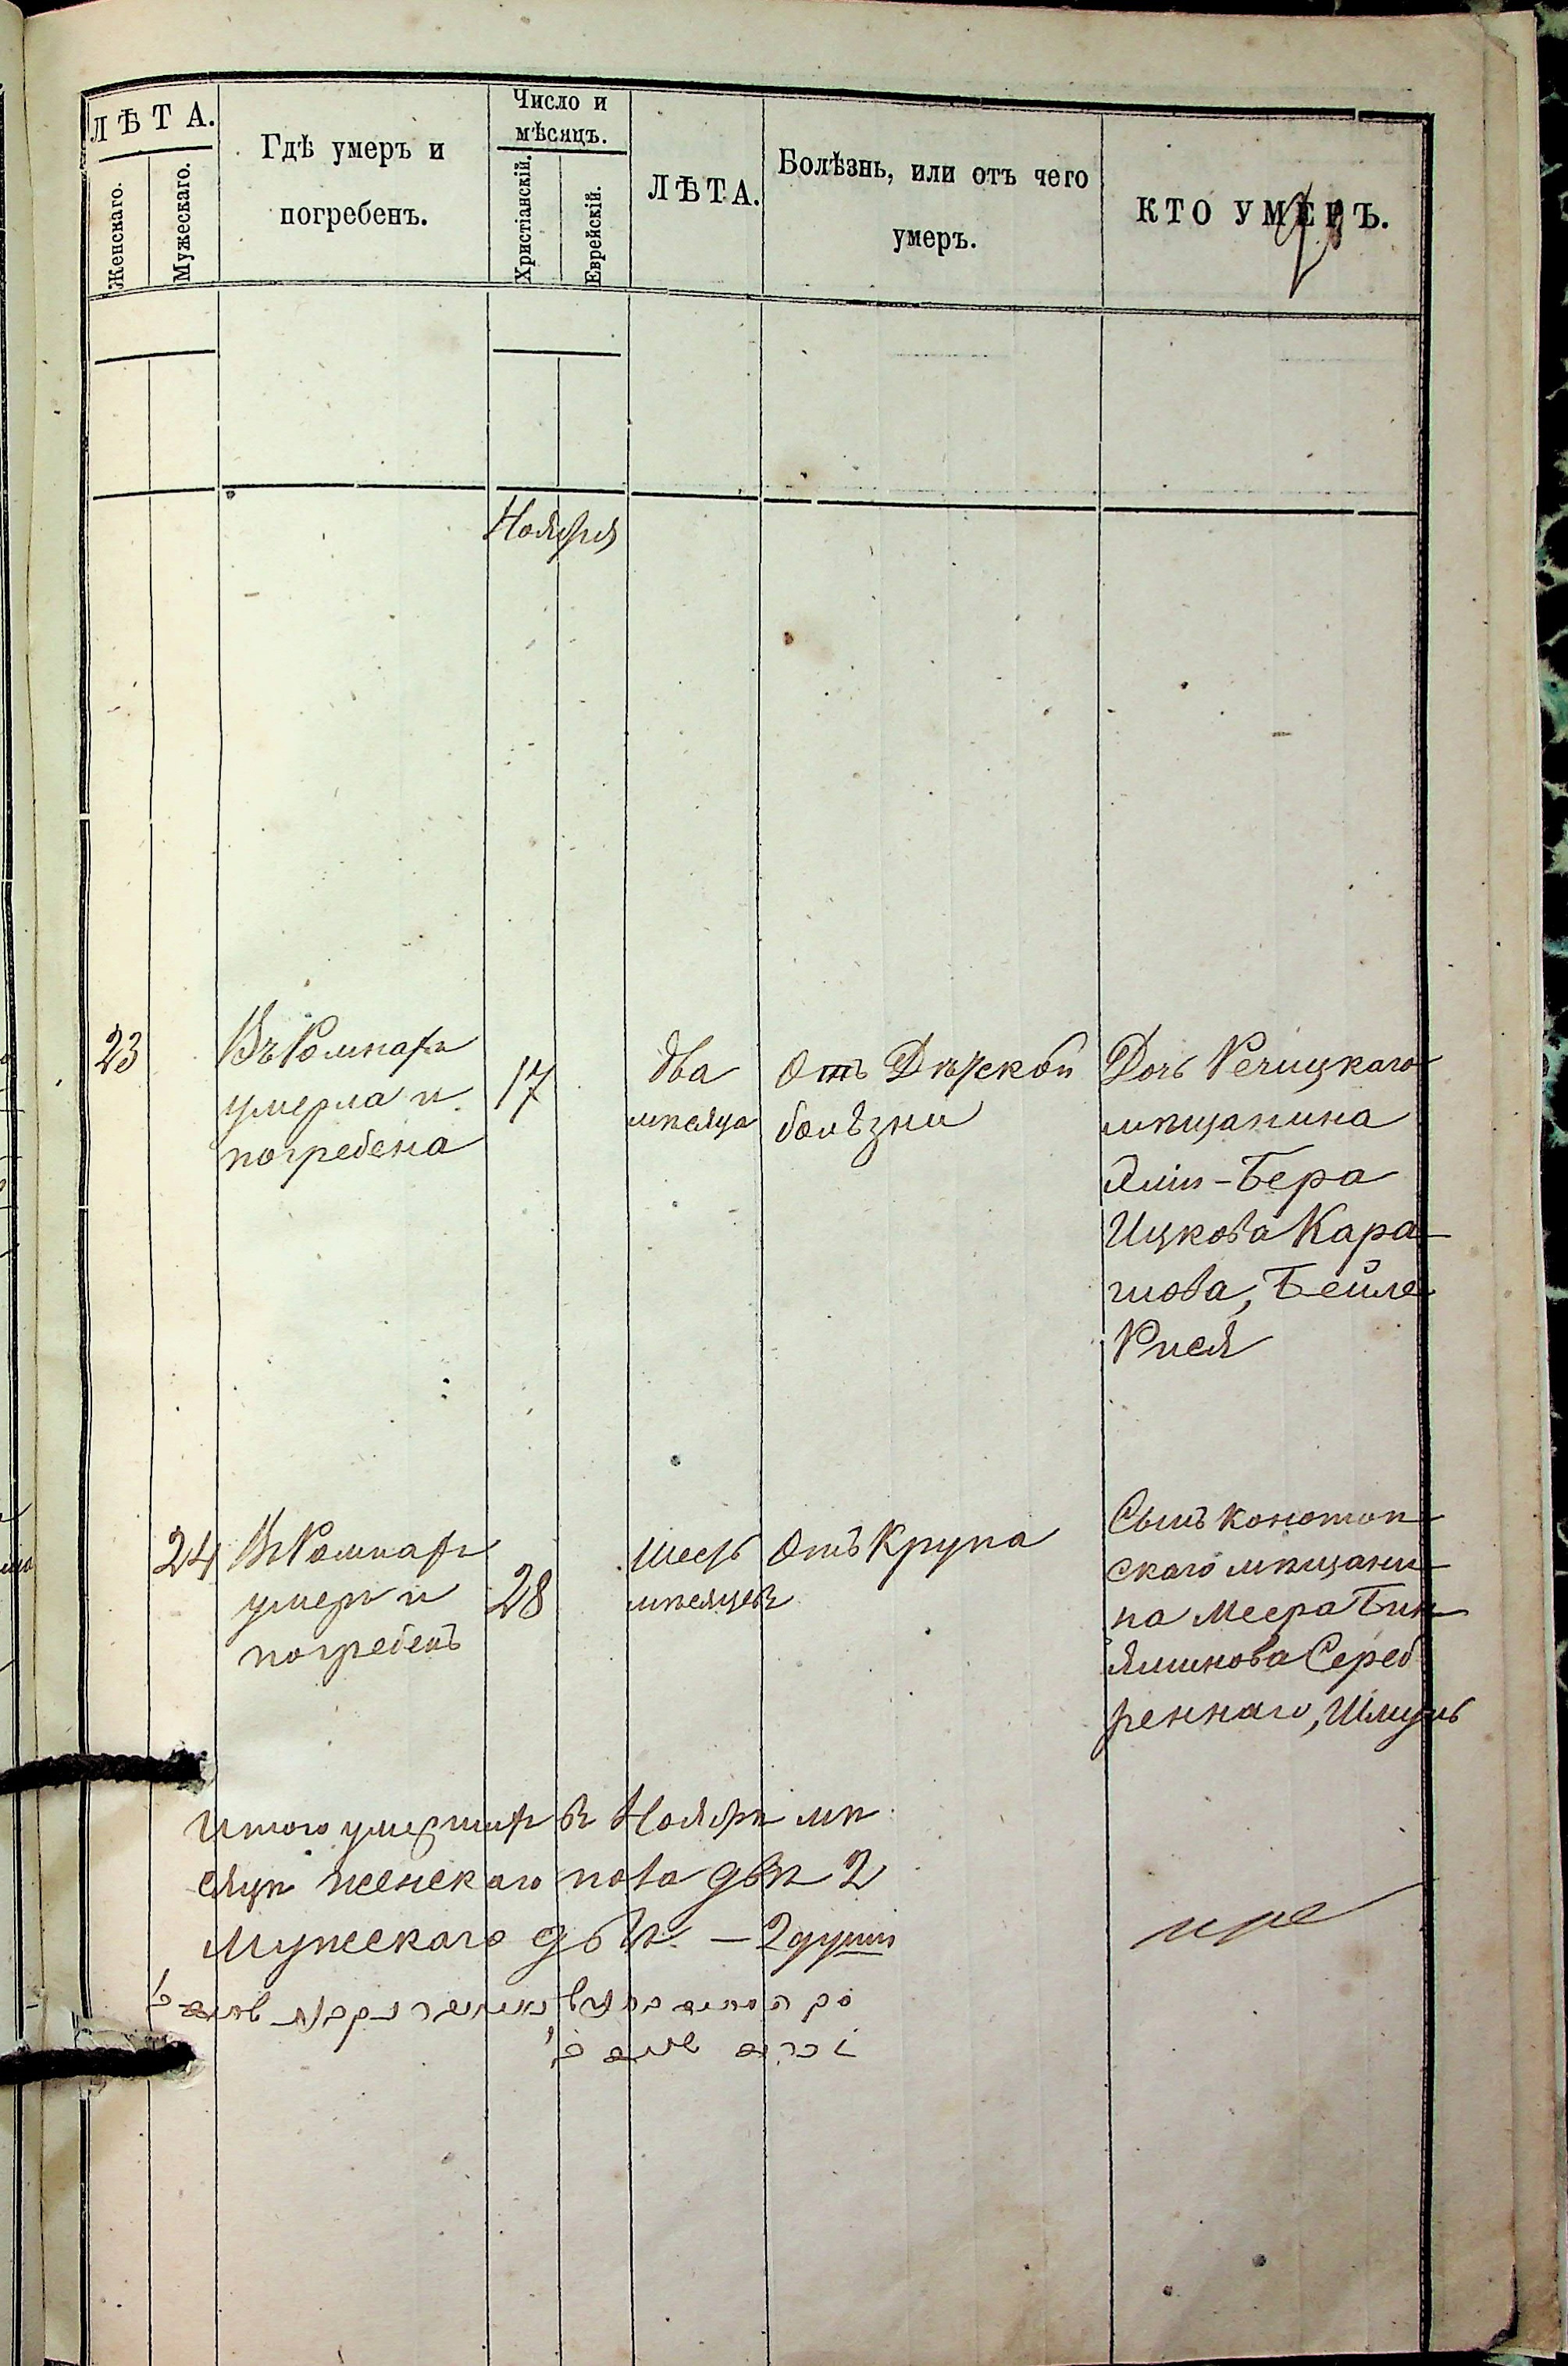 ЛѢТА.
Женскаго.
Мужескаго.
Гдѣ умеръ и
погребенъ.
Число и
мѣсяцъ.
Христіанскій.
Еврейскій.
ЛѢТА.
Болѣзнь, или отъ чего
умеръ.
КТО УМЕРЪ.
Ноября
23
Въ Ромнахъ
умерла и
погребена
17
два
мѣсяца
Отъ Дѣтской
болѣзни
Дочь Речицкаго
мѣщанина
-Бера
Ицкова Кара-
Бейле
Рися
24
Въ Ромнахъ
умеръ и
погребенъ
28
шесть
мѣсяцевъ
Отъ Крупа
Сынъ конотоп
скаго мѣщани-
на Меера Бин
яминова Сереб
реннаго,
Итого умершихъ въ Ноябрѣ мѣ
сяцѣ женскаго пола двѣ 2
Мужескаго двѣ – 2 души